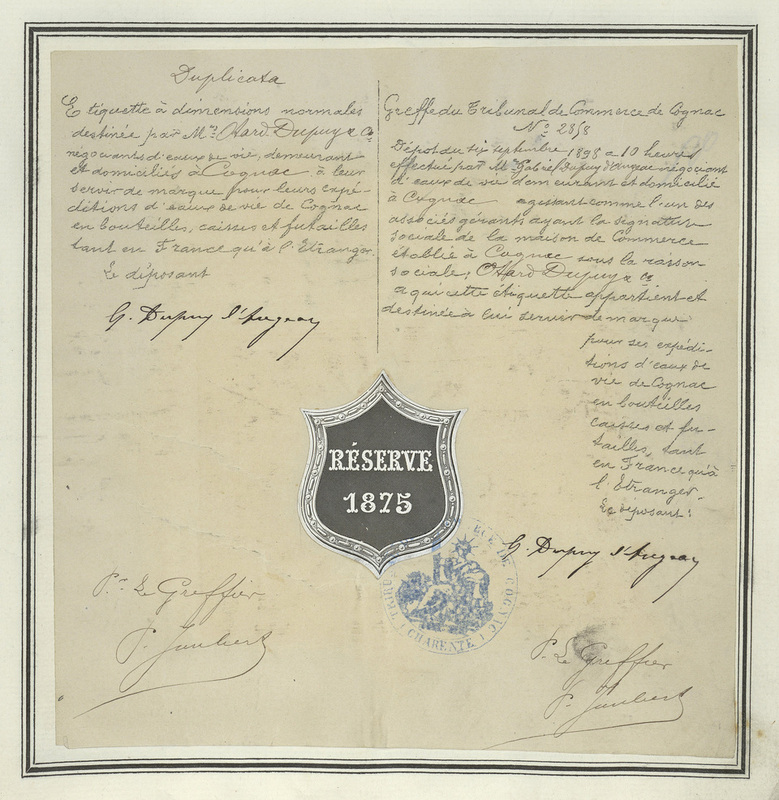 Duplicata
Etiquette à dimensions normales
destinée par Mrs Otard, Dupuy & Co
négociants d'eaux de vie, demeurant
et domiciliés à Cognac à leur
servir de marque pour leurs expé-
ditions d'eaux de vie de Cognac
en bouteilles, caisses et futailles
tant en France qu'à l'Etranger.
Le déposant
G. Dupuy d'Angeac
Greffe du Tribunal de Commerce de Cognac
No 2858
Dépôt du six septembre 1898 a 10 heures
effectué par Mr Gabriel Dupuy d'Angeac négociant
d'eaux de vie demeurant et domicilié
à Cognac agissant comme l'un des
associés gérants ayant la signature
sociale de la maison de Commerce
établie à Cognac sous la raison
sociale: Otard Dupuy & Co
a qui cette étiquette appartient et
destinée à lui servir de marque
pour ses expédi-
tions d'eaux de
vie de Cognac
en bouteilles
caisses et fu-
tailles, tant
en France qu'à
l'Etranger.
Le déposant:
G. Dupuy d'Angeac
RÉSERVE
1875
DE COGNAC
CHARENTE
Pr Le Greffier
P. Joubert
P. Le Greffier
P. Joubert